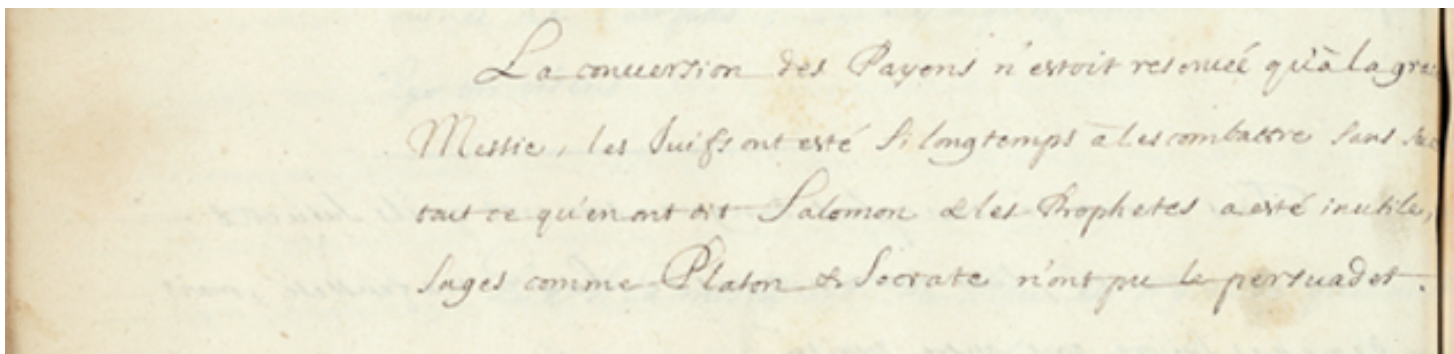 La conuersion des Payens n'estoit reseruée qu'à la gra
Messie, les Juifs ont esté si longtemps à les combattre sans suc
tout ce qu'en ont dit Salomon & les Prophetes a esté inutile,
sages comme Platon & Socrate n'ont pu le persuader.